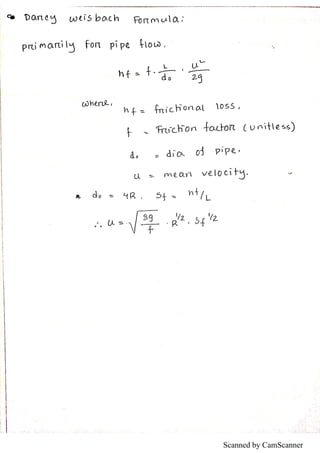 Darcy weisbach Formula:
primarily for pipe flow.
hf = f. L/d₀ . u²/2g
where,
hf = frictional loss.
f = Friction factor (unitless)
d₀ = dia of pipe.
u = mean velocity.
d₀ = 4R, Sf = hf/L
∴ u = √(8g/f) . R^1/2 . Sf^1/2
Scanned by CamScanner